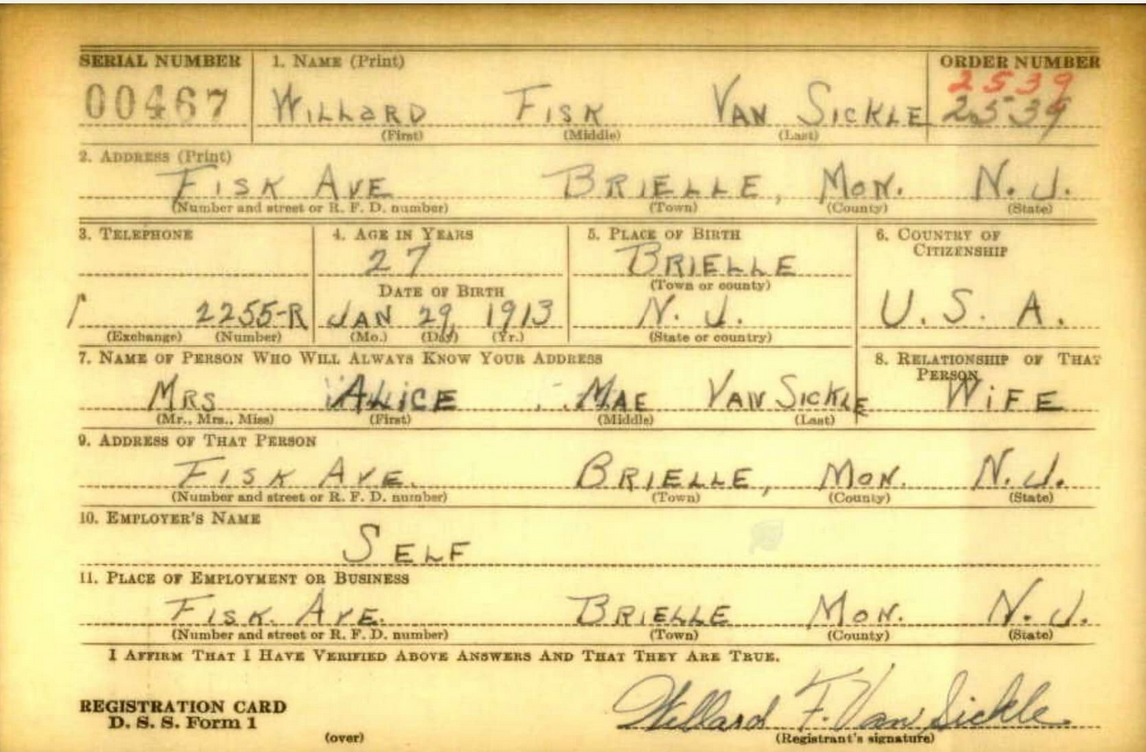 SERIAL NUMBER 1. NAME (Print) ORDER NUMBER
2539
00467 WILLARD FISK VAN SICKLE 2539
(First) (Middle) (Last)
2. ADDRESS (Print)
FISK AVE BRIELLE, MON. N. J.
(Number and street or R. F. D. number) (Town) (County) (State)
3. TELEPHONE 4. AGE IN YEARS 5. PLACE OF BIRTH 6. COUNTRY OF CITIZENSHIP
27 BRIELLE
DATE OF BIRTH (Town or county)
2255-R JAN 29 1913 N. J. U. S. A.
(Exchange) (Number) (Mo.) (Day) (Yr.) (State or country)
7. NAME OF PERSON WHO WILL ALWAYS KNOW YOUR ADDRESS 8. RELATIONSHIP OF THAT PERSON
MRS ALICE MAE VAN SICKLE WIFE
(Mr., Mrs., Miss) (First) (Middle) (Last)
9. ADDRESS OF THAT PERSON
FISK AVE. BRIELLE, MON. N. J.
(Number and street or R. F. D. number) (Town) (County) (State)
10. EMPLOYER'S NAME
SELF
11. PLACE OF EMPLOYMENT OR BUSINESS
FISK. AVE. BRIELLE MON. N. J.
(Number and street or R. F. D. number) (Town) (County) (State)
I AFFIRM THAT I HAVE VERIFIED ABOVE ANSWERS AND THAT THEY ARE TRUE.
REGISTRATION CARD Willard F. Van Sickle
D. S. S. Form 1
(over) (Registrant's signature)